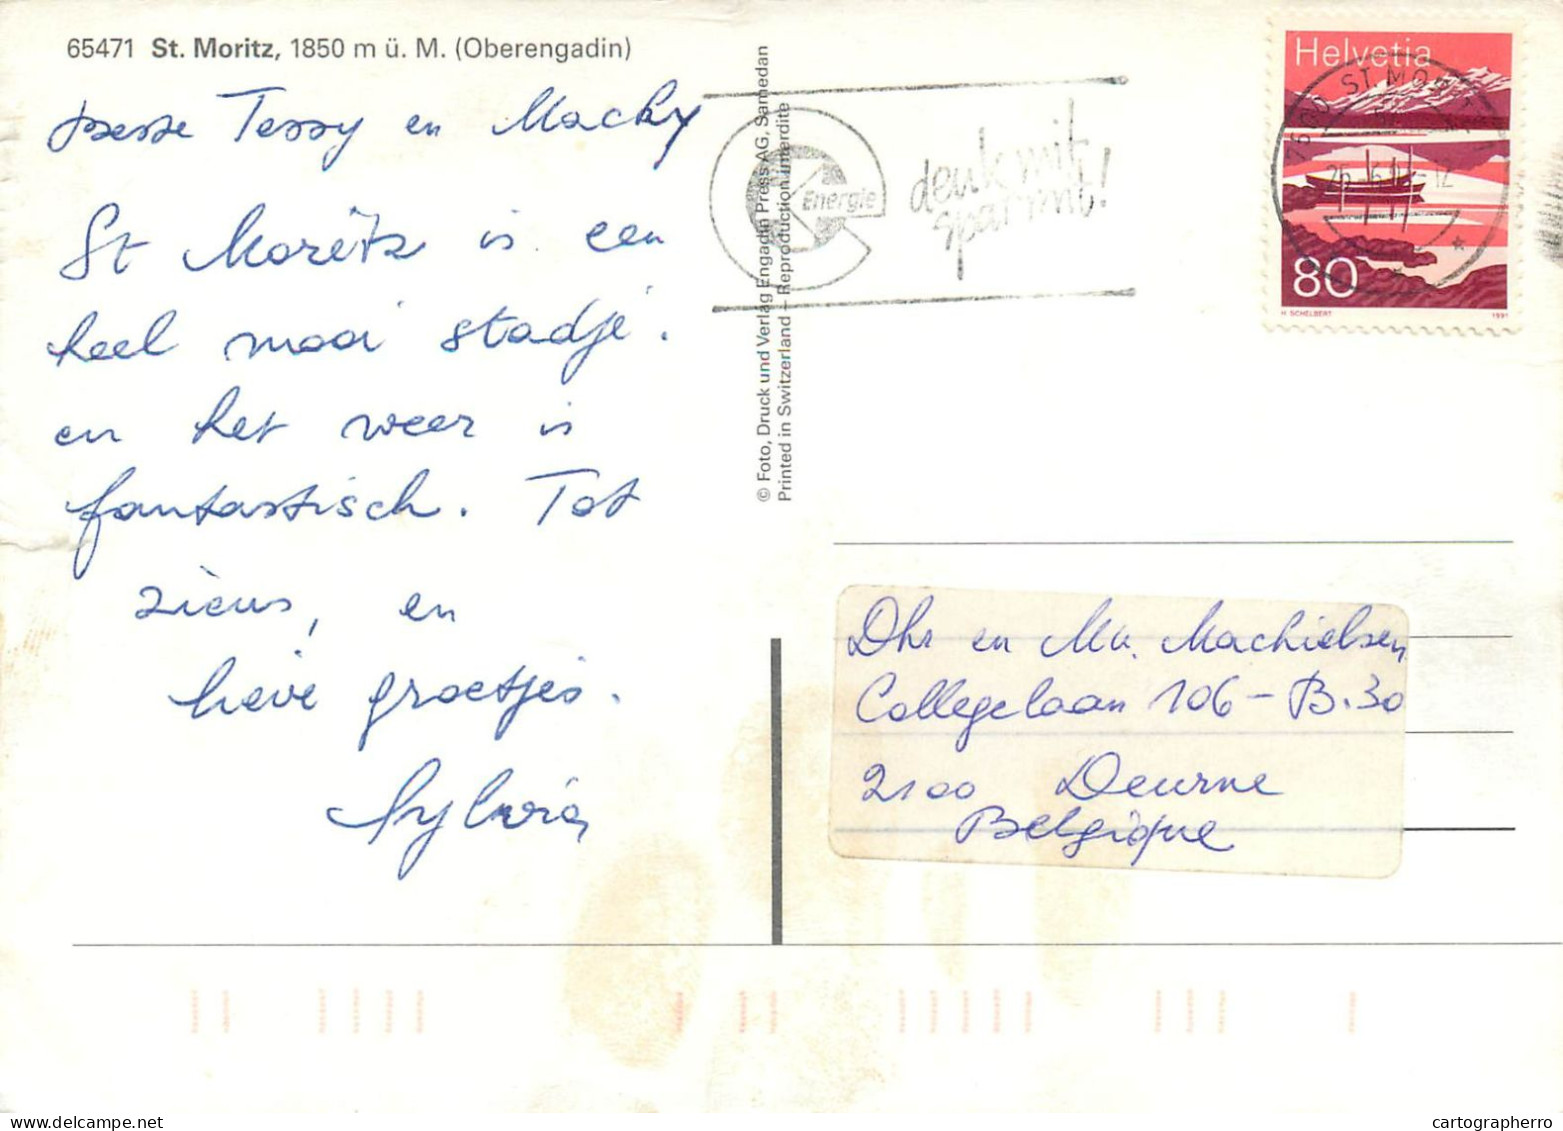 65471 St. Moritz, 1850 m ü. M. (Oberengadin)
Tessy en Macky
St Moritz is een
heel mooi stadje.
en het weer is
fantastisch. Tot
ziens, en
lieve groetjes.
Sylvia
© Foto, Druck und Verlag Engadin Press AG, Samedan
Printed in Switzerland – Reproduction interdite
Energie
denk mit
spar mit!
Helvetia
80
H. SCHELBERT
1991
7500 ST. MORITZ
Dhr en Mv. Machielsen
Collegelaan 106 – B.30
2100 Deurne
Belgique
cartographerro